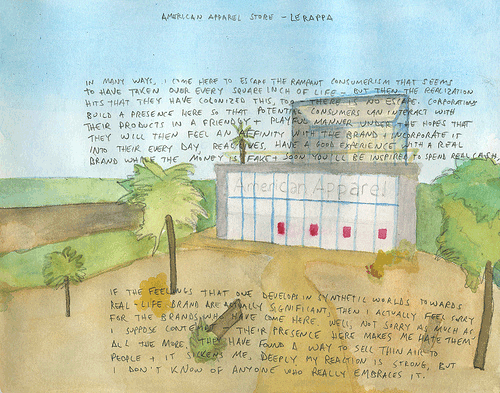 AMERICAN APPAREL STORE - LERAPPA
IN MANY WAYS, I COME HERE TO ESCAPE THE RAMPANT CONSUMERISM THAT SEEMS
TO HAVE TAKEN OVER EVERY SQUARE INCH OF LIFE - BUT THEN THE REALIZATION
HITS THAT THEY HAVE COLONIZED THIS, TOO. THERE IS NO ESCAPE. CORPORATIONS
BUILD A PRESENCE HERE SO THAT POTENTIAL CONSUMERS CAN INTERACT WITH
THEIR PRODUCTS IN A FRIENDLY + PLAYFUL MANNER UNDER THE HOPES THAT
THEY WILL THEN FEEL AN AFFINITY WITH THE BRAND + INCORPORATE IT
INTO THEIR EVERY DAY, REAL LIVES. HAVE A GOOD EXPERIENCE WITH A REAL
BRAND WHILE THE MONEY IS FAKE + SOON YOU'LL BE INSPIRED TO SPEND REAL CASH.
American Apparel
IF THE FEELINGS THAT ONE DEVELOPS IN SYNTHETIC WORLDS TOWARDS
REAL-LIFE BRAND ARE ACTUALLY SIGNIFICANT, THEN I ACTUALLY FEEL SORRY
FOR THE BRANDS WHO HAVE COME HERE. WELL, NOT SORRY AS MUCH AS
I SUPPOSE CONTEMPT. THEIR PRESENCE HERE MAKES ME HATE THEM
ALL THE MORE. THEY HAVE FOUND A WAY TO SELL THIN AIR TO
PEOPLE + IT SICKENS ME. DEEPLY. MY REACTION IS STRONG, BUT
I DON'T KNOW OF ANYONE WHO REALLY EMBRACES IT.